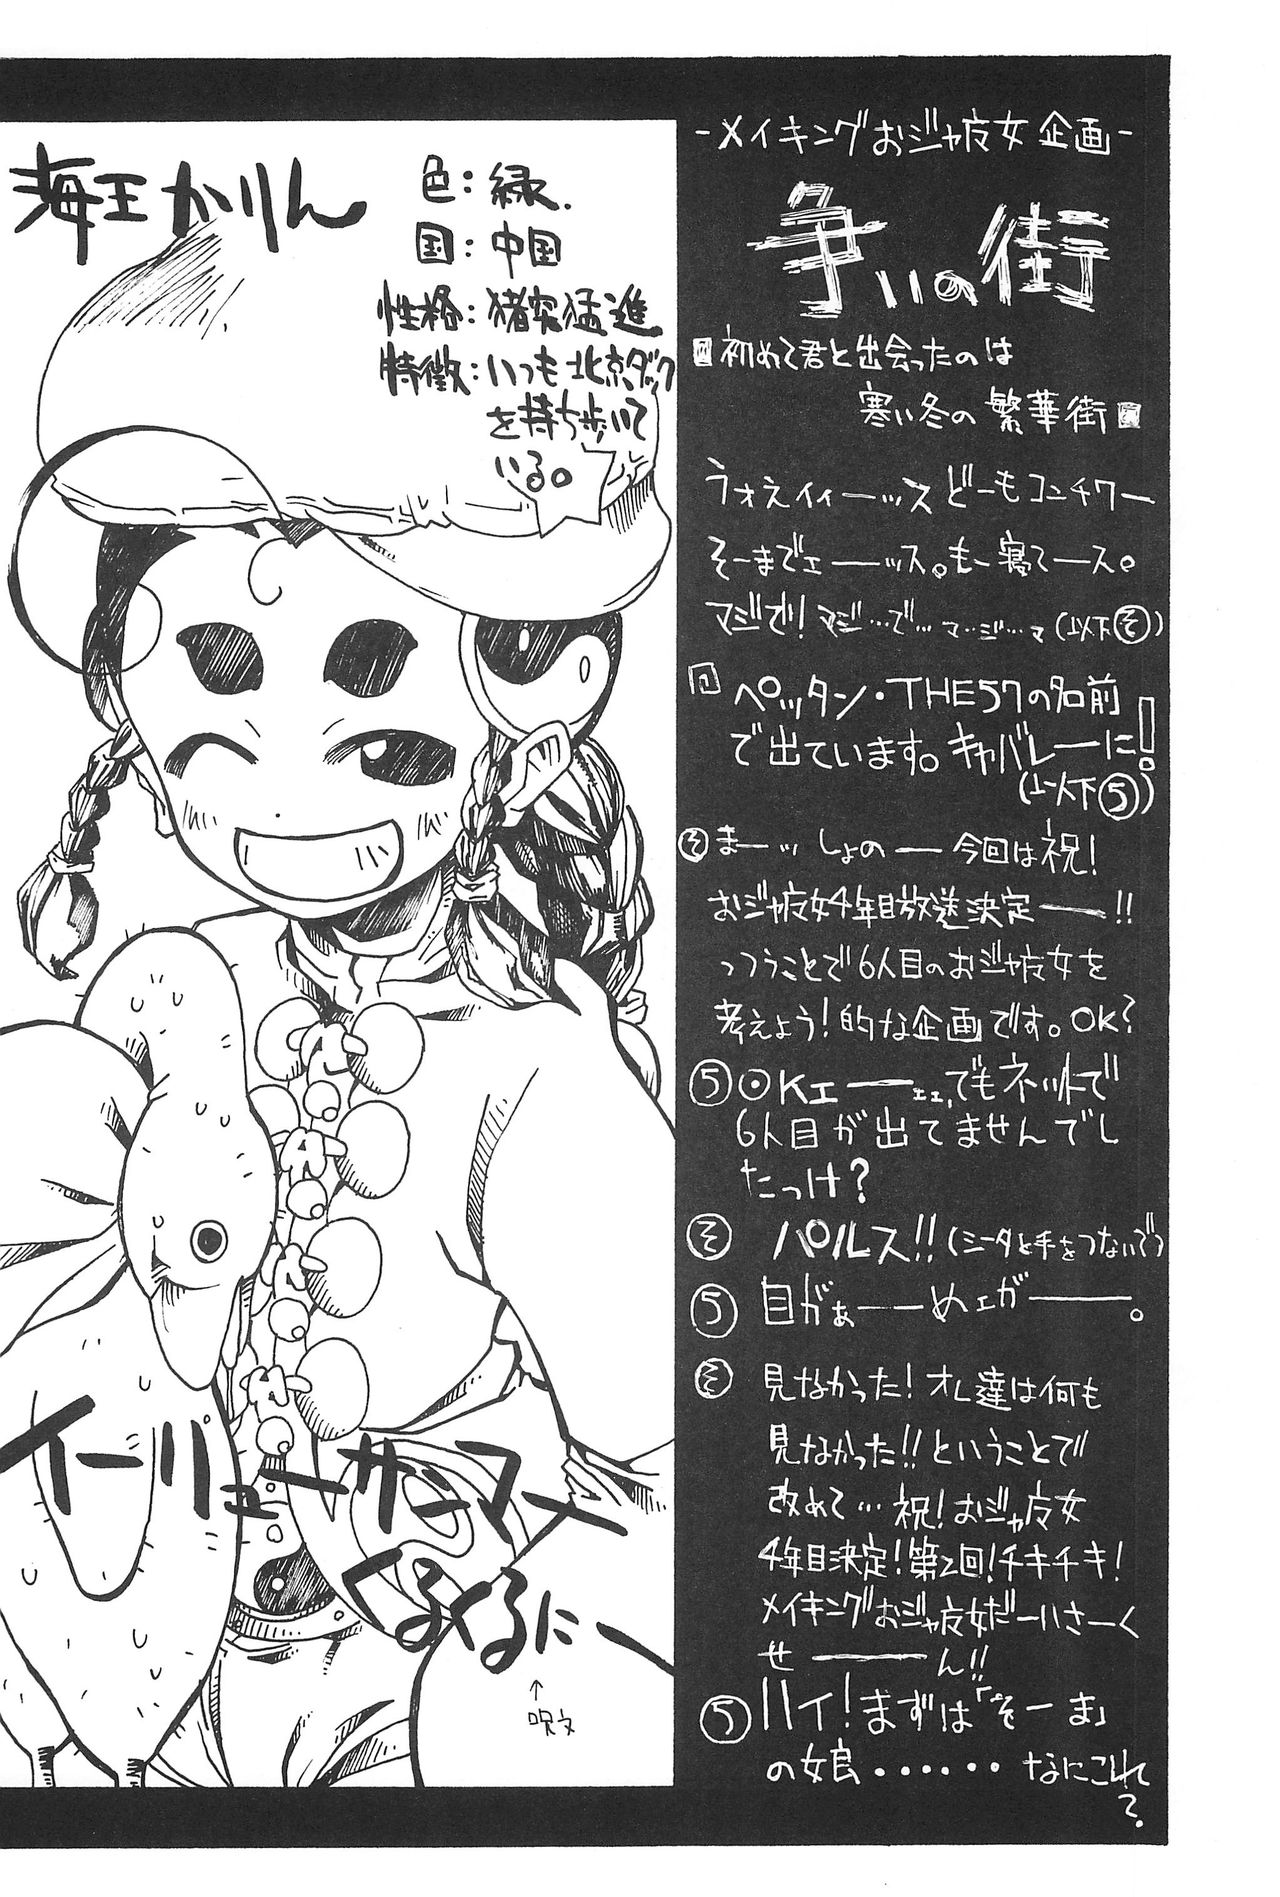 -メイキングおジャ魔女企画-
争いの街
初めて君と出会ったのは
寒い冬の繁華街
ウォえイィーッス どーもコンチワー
そーまでェーッス。もー寝てース。
マジで! マジ…で…マ…ジ…マ(以下そ)
ペッタン・THE57の名前
で出ています。キャバレーに!
(以下5)
そ まーッ しょのー今回は祝!
おジャ魔女4年目放送決定ー!!
っつうことで6人目のおジャ魔女を
考えよう!的な企画です。OK?
5 OKェーェェ,でもネットで
6人目が出てませんでし
たっけ?
そ バルス!!(シータと手をつないで)
5 目がぁーーめェがーー。
そ 見なかった!オレ達は何も
見なかった!!ということで
改めて…祝!おジャ魔女
4年目決定!第2回!チキチキ!
メイキングおジャ魔女だーいさーく
せーーん!!
5 ハイ!まずは「そーま」
の娘・・・・・・なにこれ
?
海王かりん
色:緑.
国:中国
性格:猪突猛進
特徴:いつも北京ダック
を持ち歩いて
いる。
イーリューザンフー
くるくるにー
↑
呪文